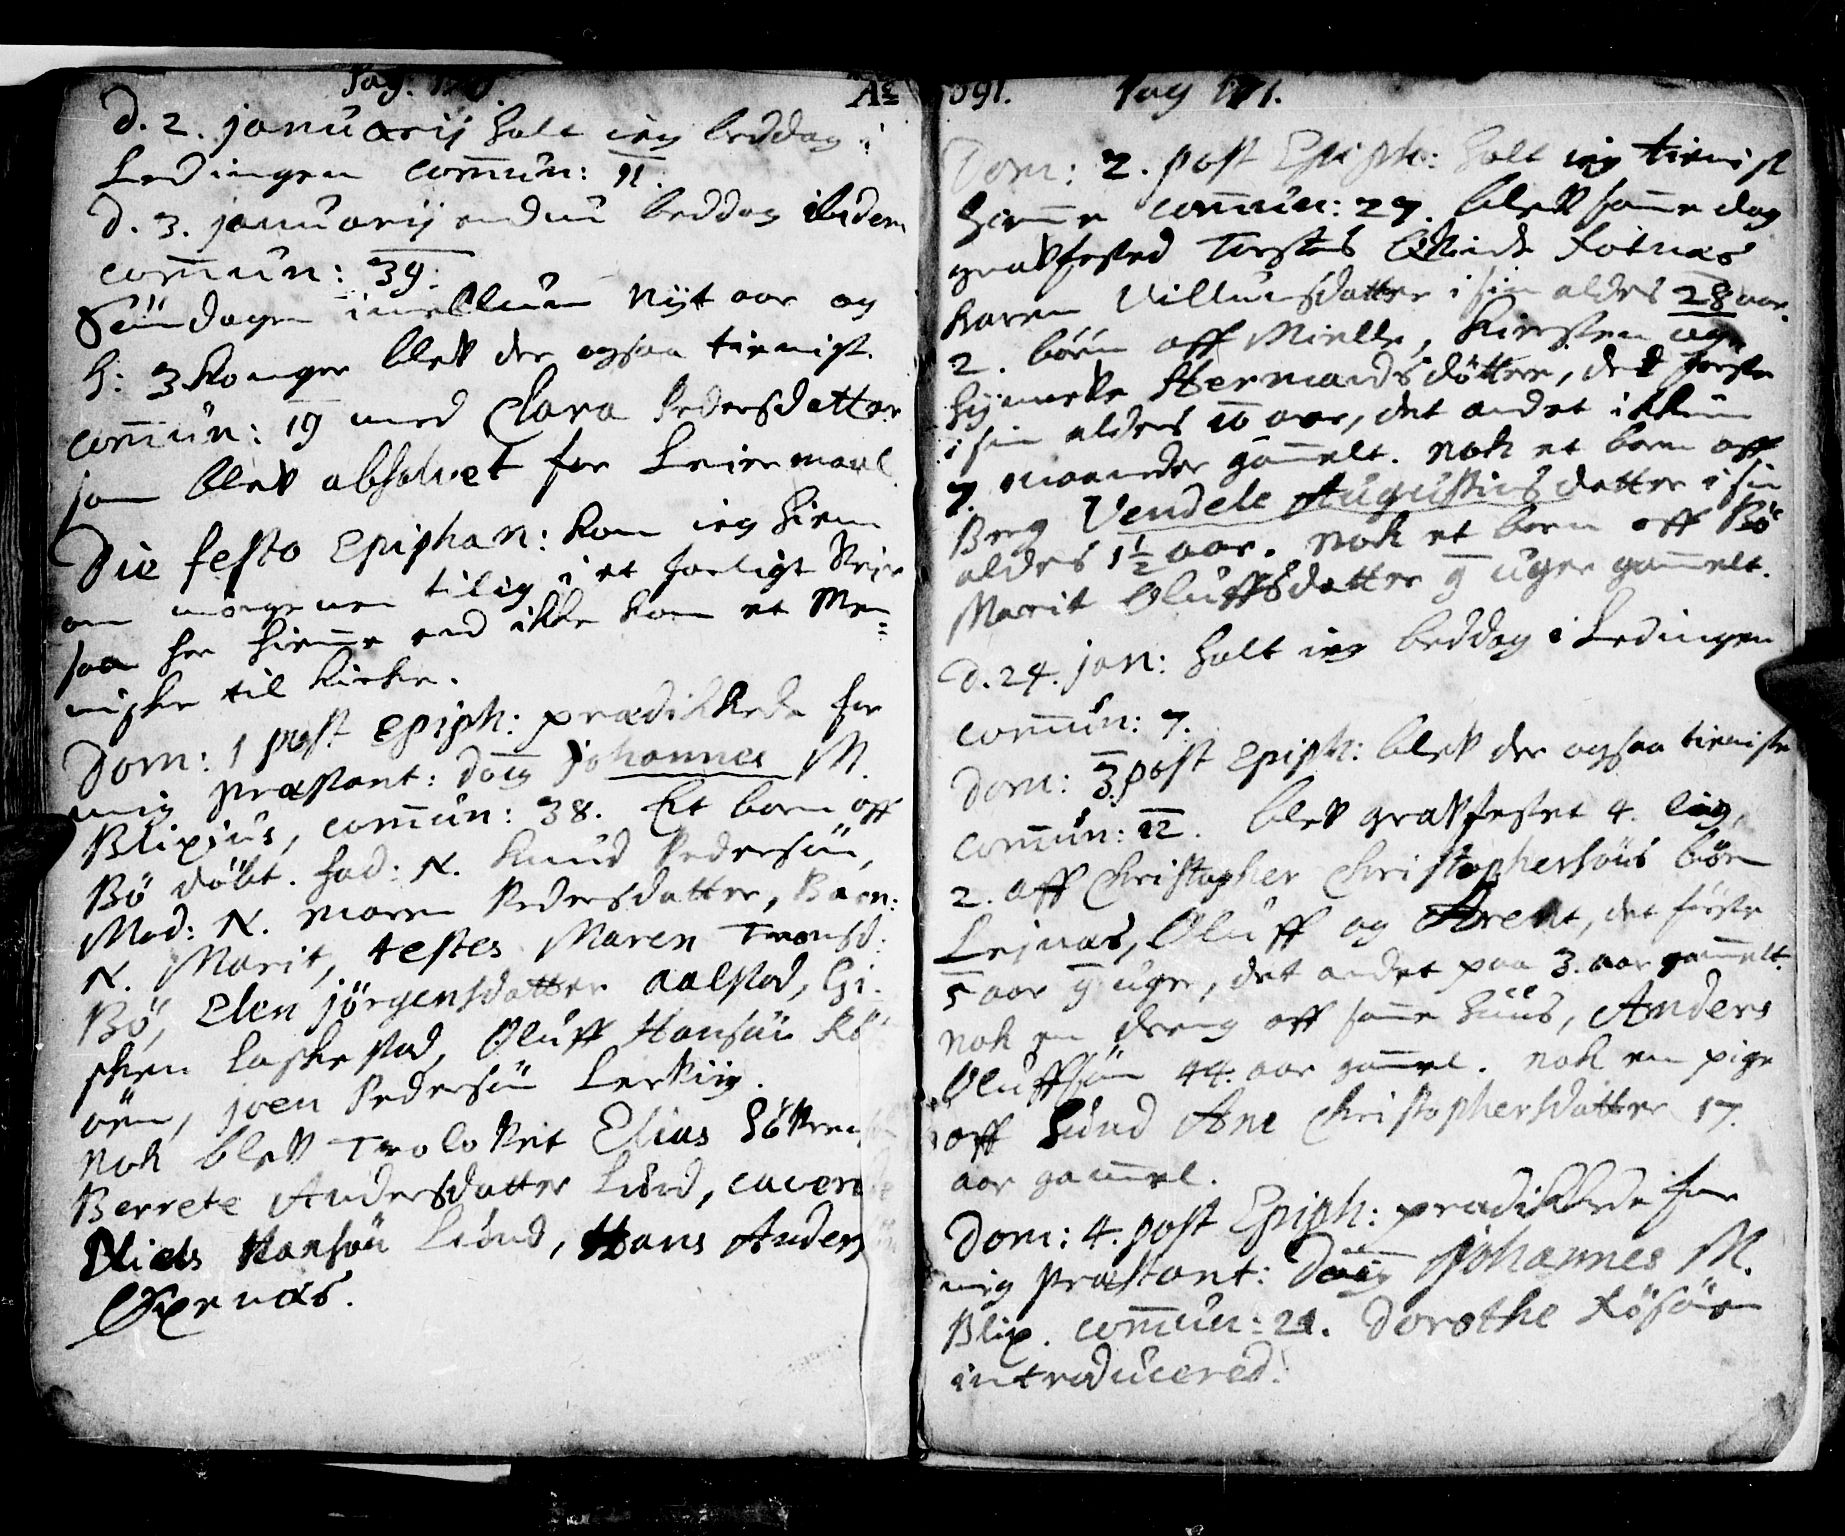 Pag. 170
Aº
d. 2. januarij holt ieg beddag i
Ledingen com̄un: 11.
d. 3. januarij endnu beddag ibidem
com̄un: 39.
Söndagen imellum Nijt aar og
H: 3 Konger blef der ogsaa tienist.
com̄un: 19 med Clara Pedersdatter
som blef absolvet for Leiermaal
Die festo Epiphan: kom ieg hiem
om morgenen tilig i et farligt Veir
saa her hiem̄e end ikke kom et Men=
niske til Kirke.
Dom: 1 post Epiph: prædikkede for
mig præstant: Doīg Johannes M.
Blixius, com̄un: 38. Et barn aff
Bö döbt. fad: N. Knud Pedersön,
Mod: N. Maren Pedersdatter, Barn:
N. Marit, testes Maren Tronsd:
Bö, Elen jörgensdatter Aalstad, Gi-
sken Laskestad, Oluff Hansön Kö
öen, joen Pedersön Lerviig.
Nok blef Trolovet Elias Söfrens
Berrete Andersdatter Lund, caver
Niels Hansön Lund, Hans Anders
Oxenæs.
1691. Pag 171.
Dom: 2. post Epiph: holt ieg tienist
hiem̄e com̄un: 27. blef sam̄e dag
grafsested Torstes Qvinde Fotnæs
Karen Villumsdatter i sin alder 28 aar.
2. börn aff Mielle, Kirsten og
Hyneke Hermandsdötter, det förste
i sin alder 10 aar, det andet ikkun
7. maaneder gam̄elt. Nok et barn aff
Berg Vendele Augustinsdatter i sin
alder 1½ aar. Nok et barn aff Bö
Marit Oluffsdatter 9 uger gam̄elt.
d. 24. jan: holt ieg beddag i Ledingen
com̄un: 7.
Dom: 3. post Epiph: blef der ogsaa tieniste
com̄un: 12. blef grafsestet 4. lig,
2. aff Christopher Christophersöns börn
Lejnæs, Oluff og Arent, det förste
5 aar 9 uger, det andet paa 3. aar gam̄elt.
Nok en dreng aff sam̄e Huus, Anders
Oluffsön 44. aar gam̄el. Nok en pige
aff Lund Ane Christophersdatter 17.
aar gam̄el.
Dom: 4. post Epiph: prædikkede for
mig præstant: Doīg Johannes M.
Blix. com̄un: 21. Dorothe Kösöen
introducered!